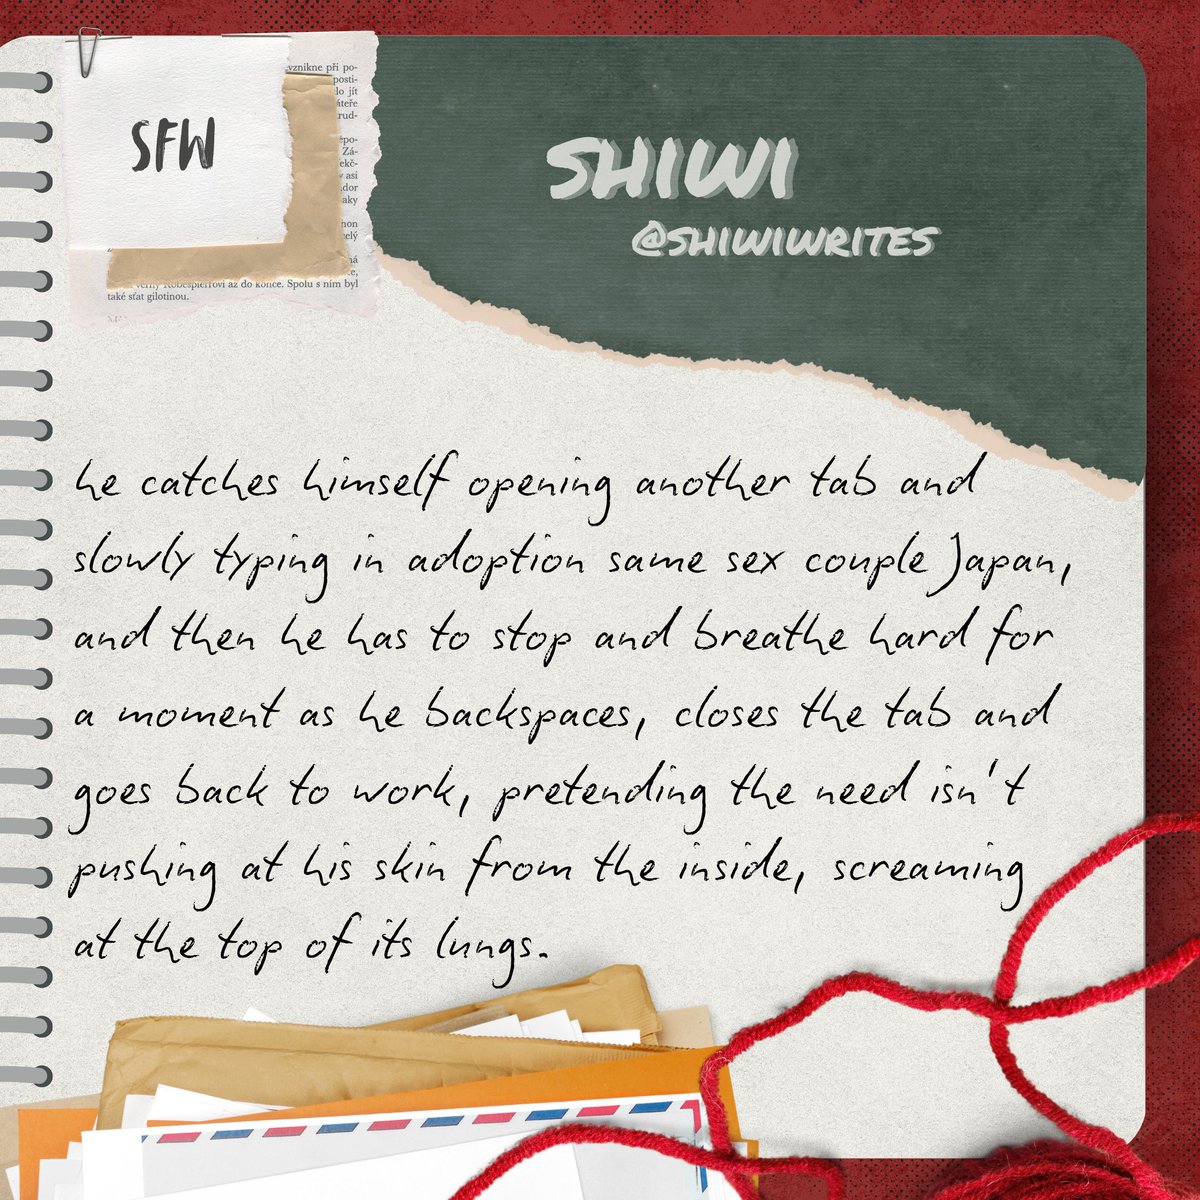 SFW
vznikne při po-
posti-
lo jít
áteře
rud-
épo-
Zá-
ekč-
v asi
ador
aky
non
celý
ná
ce,
verný Robespierrovi až do konce. Spolu s ním byl
také sťat gilotinou.
SHIWI
@SHIWIWRITES
he catches himself opening another tab and
slowly typing in adoption same sex couple Japan,
and then he has to stop and breathe hard for
a moment as he backspaces, closes the tab and
goes back to work, pretending the need isn't
pushing at his skin from the inside, screaming
at the top of its lungs.